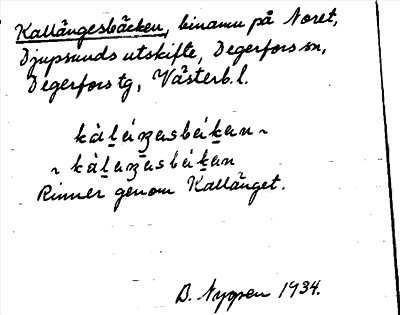 Kallängesbäcken, binamn på Noret,
Djupsunds utskifte, Degerfors sn,
Degerfors tg, Västerb. l.
Rinner genom Kallänget.
B. Nygren 1934.